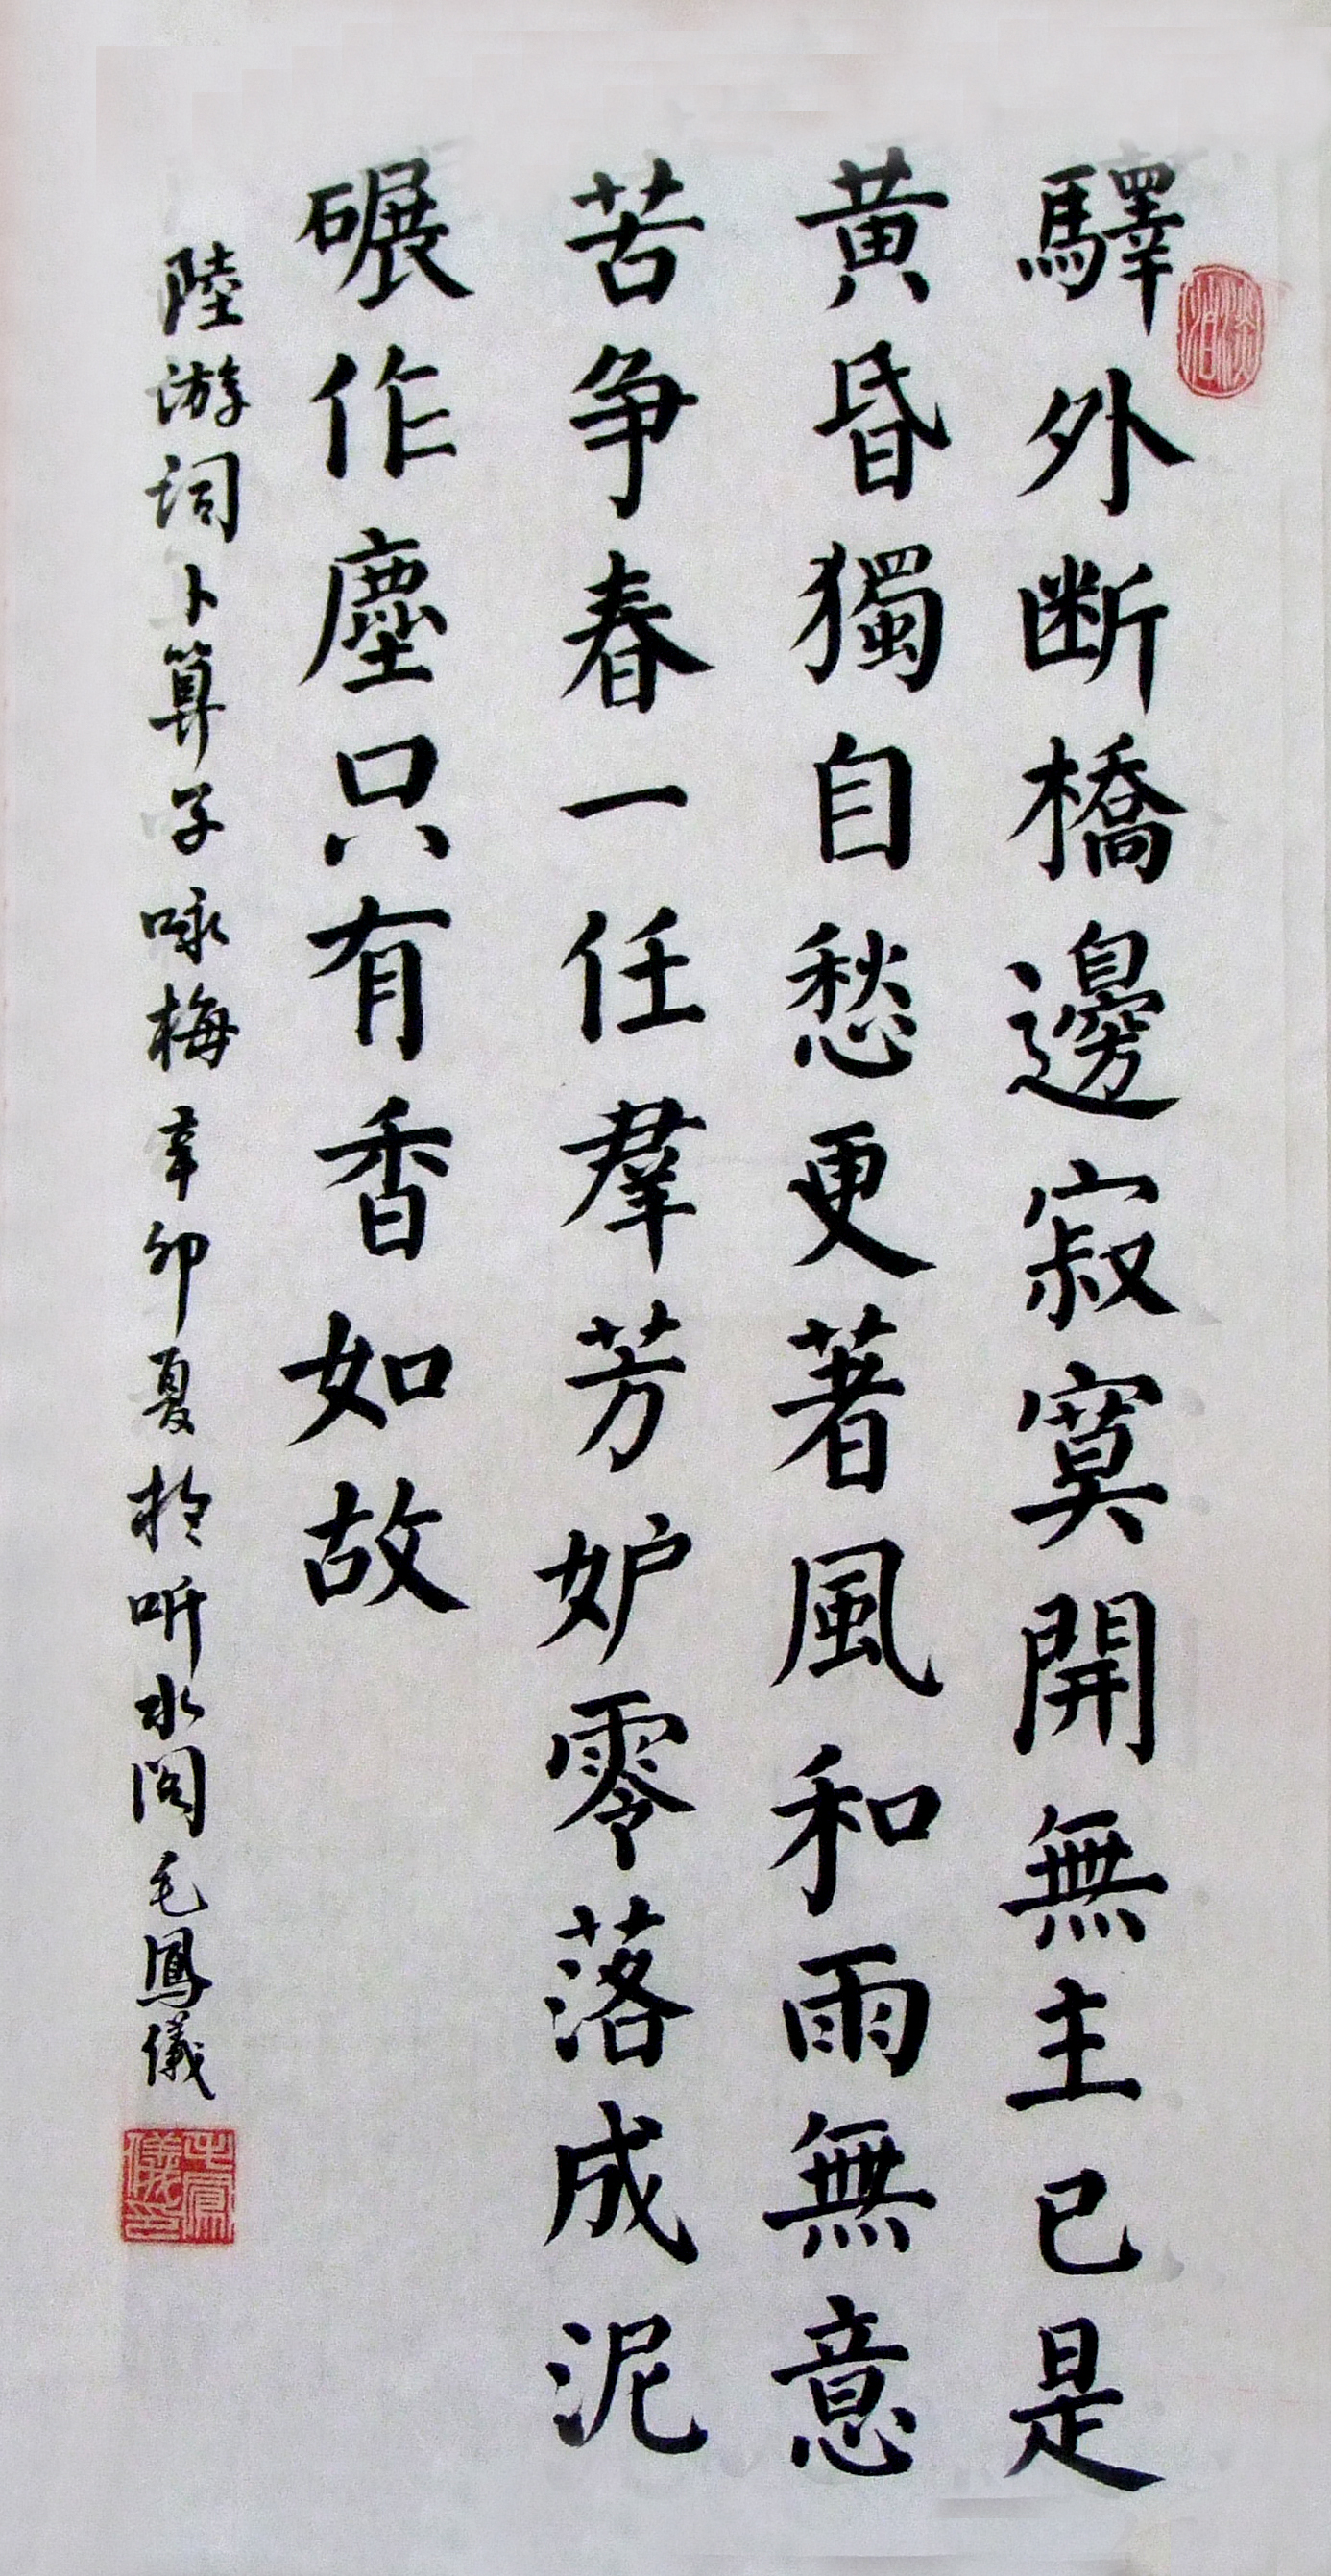 驛外断橋邊寂寞開無主已是
黄昏獨自愁更著風和雨無意
苦争春一任羣芳妒零落成泥
碾作塵只有香如故
陸游词卜算子咏梅辛卯夏於听水阁毛鳳儀
淡泊
毛鳳儀印